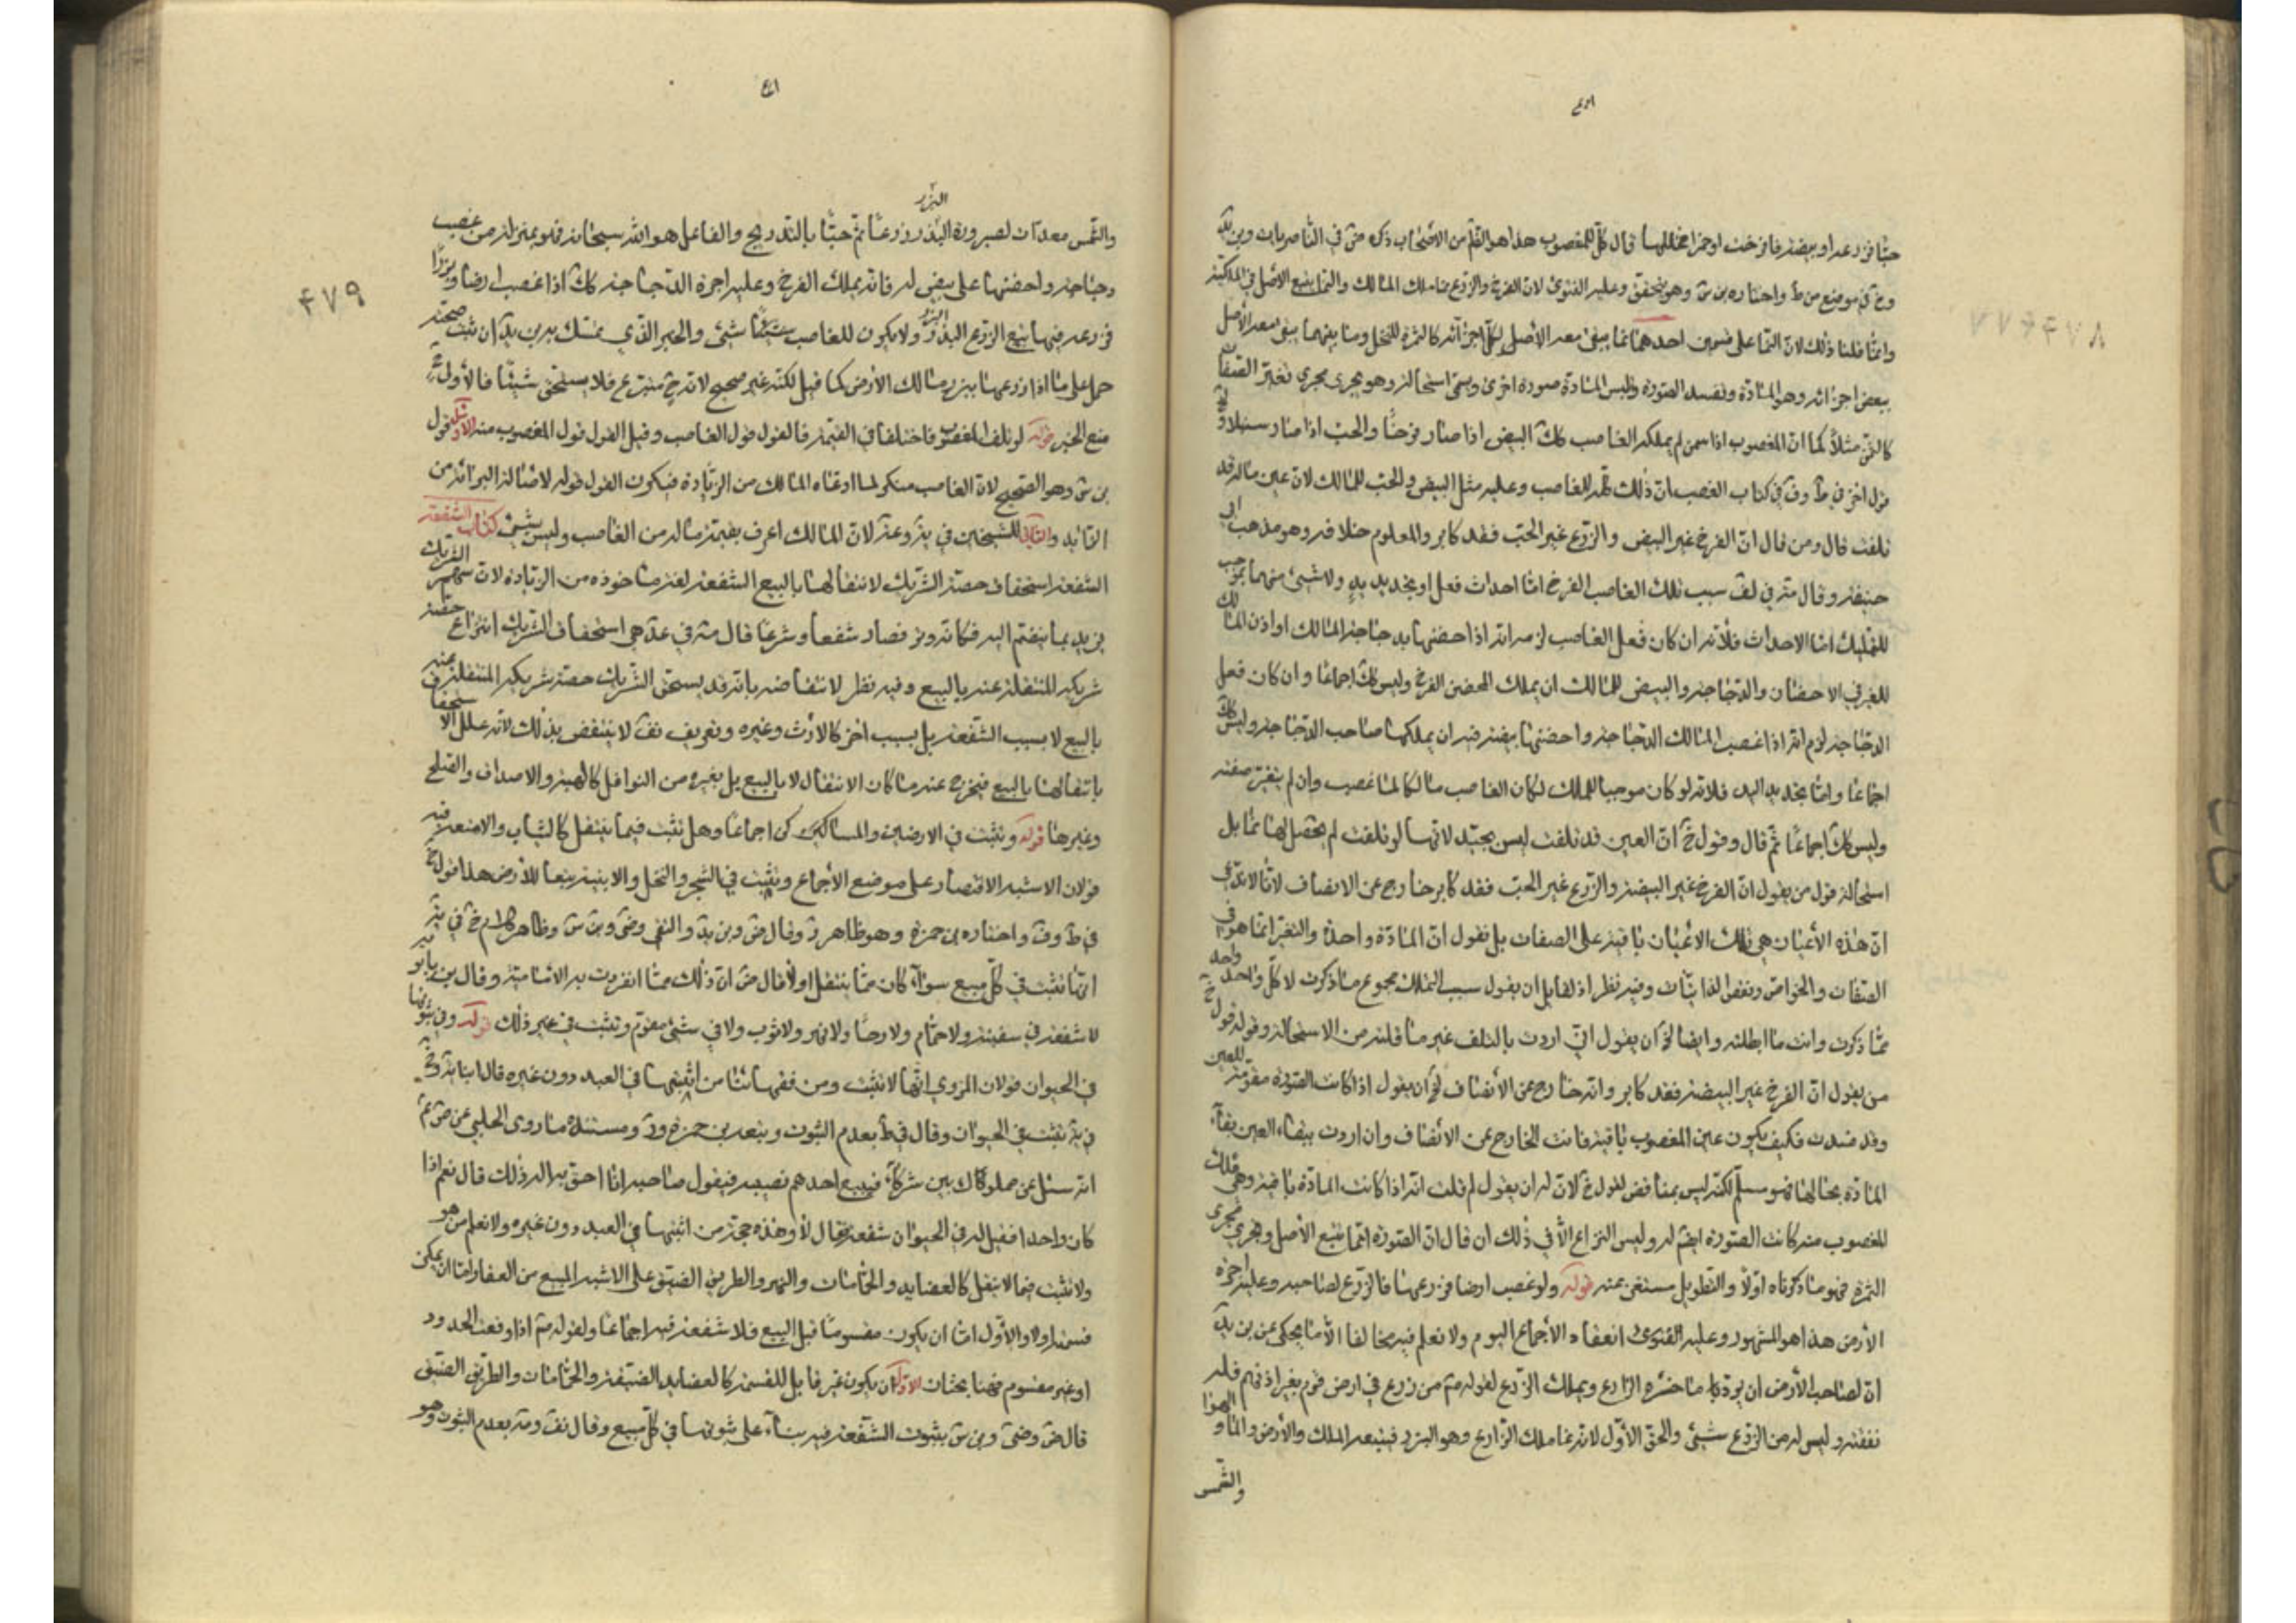 حبّا فزرعه او بيضة فافرخت او خمرا فخللها قال كل للمغصوب هذا هو القائم من الاصحاب ذكره ض في الناصريات وبن
في موضع من ط واختاره بن س وهو يتحقق وعليه الفتوى لان الفرخ والزرع نما ملك المالك والنما يتبع الاصل في الملكية
وانما قلنا ذلك لان النما على قسمين احدهما نما يبقى معه الاصل لكل اجزائه كالثمرة للنخل ومنا بينهما يبقى معه الأصل
ببعض اجزائه وهو المادة وتفسد الصورة وتلبس المادة صورة اخرى ويسمى استحالة وهو يجرى مجرى تغير الصفات
كالسمن مثلا كما ان المغصوب اذا سمن لم يملكه الغاصب كك البيض اذا صار فرخا والحب اذا صار سنبلا و
قول اخر في ط وف في كتاب الغصب ان ذلك للغاصب وعليه مثل البيض والحب للمالك لان عين ماله قد
تلفت قال ومن قال ان الفرخ غير البيض والزرع غير الحب فقد كابر والمعلوم خلافه وهو مذهب ابي
حنيفة وقال في لف سبب تملك الغاصب الفرخ اما احداث فعل او تجديد يد ولا شيئ منهما بموجب
للتمليك اما الاحداث فلأنه ان كان فعل الغاصب لزم انه اذا احضنها بدجاجة المالك او اذن المالك
للغير في الاحضان والدجاجة والبيض للمالك ان يملك المحضن الفرخ وليس كك اجماعا وان كان فعل
الدجاجة لزم انه اذا غصب المالك الدجاجة واحضنها بيضة فيه ان يملكها صاحب الدجاجة وليس كك
اجماعا واما تجديد اليد فلانه لو كان موجبا للملك لكان الغاصب مالكا لما غصب وان لم يتغير صفته
وليس كك اجماعا ثم قال وقول خ ان العين قد تلفت ليس بجيد لانها لو تلفت لم يحصل لها نما بل
استحالة قول من يقول ان الفرخ غير البيضة والزرع غير الحب فقد كابر خارج عن الانصاف لانا لا ندعي
ان هذه الأعيان هي تلك الاعيان باقية على الصفات بل نقول ان المادة واحدة والتغير انما هو في
الصفات والخواص وبعض الذاتيات وفيه نظر اذ لقايل ان يقول سبب التملك مجموع ما ذكرت لا كل واحد واحد
مما ذكرت وانت ما ابطلته وايضا ان يقول اني اردت بالتلف غير ما قلته من الاستحالة وقوله قول
من يقول ان الفرخ غير البيضة فقد كابر وانه خارج عن الأنصاف ان يقول اذا كانت الصورة مقومة للعين
وقد فسدت فكيف يكون عين المغصوب باقية فانت الخارج عن الانصاف وان اردت ببقاء العين بقاء
المادة بحالها فهو مسلم لكنه ليس بمناقض لقول خ لان له ان يقول لم قلت انه اذا كانت المادة باقية وهي ملك
المغصوب منه كانت الصورة ايضا له وليس النزاع الا في ذلك ان قال ان الصورة انما تتبع الأصل ويجري مجرى
الثمرة فهو ما ذكرناه اولا والتطويل مستغنى عنه قوله ولو غصب ارضا فزرعها فالزرع لصاحبه وعليه اجرة
الأرض هذا هو المشهور وعليه الفتوى وانعقاد الاجماع اليوم ولا نعلم فيه مخالفا الا ما يحكى عن بن
ان لصاحب الأرض ان يؤدي ما خسره الزارع ويملك الزرع لقوله من زرع في ارض قوم بغير اذنهم فله
نفقته وليس له من الزرع شيئ والحق الأول لانه نما ملك الزارع وهو البزر فيتبعه الملك والأرض والماء والهواء
والشمس
٤٧٨
والشمس معدات لصيرورة البذر زرعا ثم حبّا بالتدريج والفاعل هو الله سبحانه فهو بمنزلة من غصب
البزر
دجاجة واحضنها على بيض له فانه يملك الفرخ وعليه اجرة الدجاجة كك اذا غصب ارضا وبزرا
فزرعه فيها يتبع الزرع البذر ولا يكون للغاصب شيئ والخبر الذي يمسك به بن ان ثبت صحته
حمل على ما اذا زرعها ببزر مالك الارض كما قيل لكنه غير صحيح لانه ح متبرع فلا يستحق شيئا فالأولى
منع الخبر قوله لو تلف المغصوب فاختلفا في القيمة فالقول قول الغاصب وقيل القول قول المغصوب منه الاول قول
بن س وهو الصحيح لان الغاصب منكر لما ادعاه المالك من الزيادة فيكون القول قوله لاصالة البرائة من
الزائد والثاني للشيخين في يه وعه لان المالك اعرف بقيمة ماله من الغاصب وليس بشيئ كتاب الشفعة
الشفعة استحقاق حصة الشريك لانتقالها بالبيع الشفعة لغة ماخوذة من الزيادة لان سهم الشريك
يزيد بما ينضم اليه فكانه وتر فصار شفعا وشرعا قال في عد هي استحقاق الشريك انتزاع حصة
شريكه المنتقلة عنه بالبيع وفيه نظر لانتقاضه بانه قد يستحق الشريك حصة شريكه المنتقلة عنه
بالبيع لا بسبب الشفعة بل بسبب اخر كالارث وغيره وتعريف لا ينتقض بذلك لانه علل الاستحقاق
بانتقالها بالبيع فيخرج عنه ما كان الانتقال لا بالبيع بل بغيره من النواقل كالهبة والاصداق والصلح
وغيرها قوله وتثبت في الارضين والمساكن اجماعا وهل تثبت فيما ينتقل كالثياب والامتعة فيه
قولان الاشبه الاقتصار على موضع الأجماع وتثبت في الشجر والنخل والابنية تبعا للأرض هذا قول خ
في ط وف واختاره بن حمزة وهو ظاهر وقال ض وبن والتقي وضى وبن س وظاهر كلام خ في يه
انها تثبت في كل مبيع سواء كان مما ينتقل اولا قال ض ان ذلك مما انفردت به الامامية وقال بن بابويه
لا شفعة في سفينة ولا حمام ولا رحا ولا نهر ولا ثوب ولا في شيئ مقسوم وتثبت في غير ذلك قوله وفي ثبوتها
في الحيوان قولان المروي انها لا تثبت ومن فقهائنا من اثبتها في العبد دون غيره قال ابنا
في يه تثبت في الحيوان وقال في ط بعدم الثبوت وتبعه بن حمزة ومستنده ما روى الحلبي عن ص ع
انه سئل عن مملوك بين شركاء فيبيع احدهم نصيبه فيقول صاحبه انا احق به اله ذلك قال نعم اذا
كان واحدا فقيل له في الحيوان شفعة فقال لا وهذه حجة من اثبتها في العبد دون غيره ولا نعلم من هو
ولا تثبت فيما لا ينقل كالعضايد والحمامات والنهر والطريق الضيق على الاشبه المبيع من العقار اما ان يمكن
قسمته اولا والأول اما ان يكون مقسوما قبل البيع فلا شفعة فيه اجماعا ولقوله اذا وقعت الحدود
او غير مقسوم فهنا بحثان الأول ان يكون غير قابل للقسمة كالعضايد الضيقة والحمامات والطريق الضيق
قال ض وضى وبن س بثبوت الشفعة فيه بناء على ثبوتها في كل مبيع وقال بعدم الثبوت وهو
٤٧٩